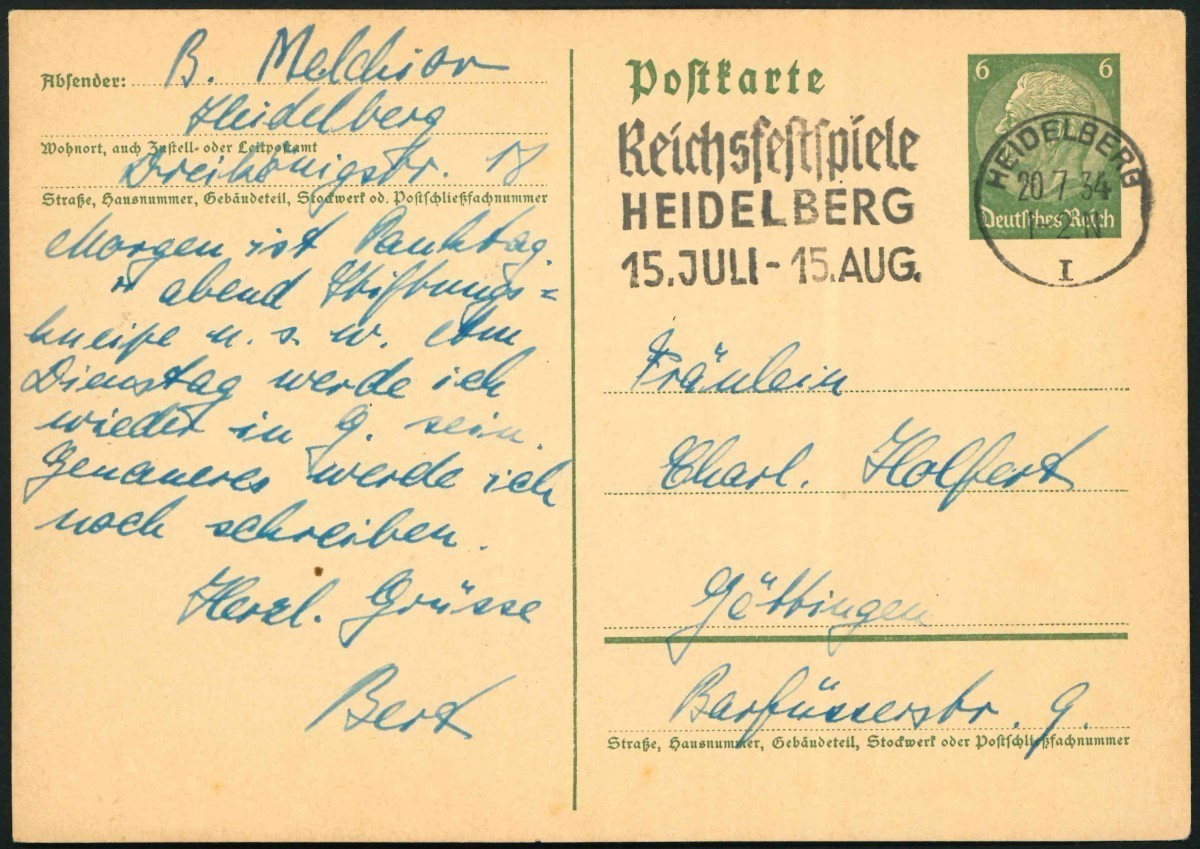 Absender: B. Melchior
Heidelberg
Wohnort, auch Zustell- oder Leitpostamt
Dreikönigstr. 18
Straße, Hausnummer, Gebäudeteil, Stockwerk od. Postschließfachnummer
Morgen ist Pauktag.
abend Stiftungs=
kneipe u. s. w. Am
Dienstag werde ich
wieder in G. sein.
Genaueres werde ich
noch schreiben.
Herzl. Grüsse
Bert
Postkarte
Reichsfestspiele
HEIDELBERG
15. JULI - 15. AUG.
6 6
HEIDELBERG
20 7 34
Deutsches Reich
I
Fräulein
Charl. Holfert
Göttingen
Barfüsserstr. 9.
Straße, Hausnummer, Gebäudeteil, Stockwerk oder Postschließfachnummer